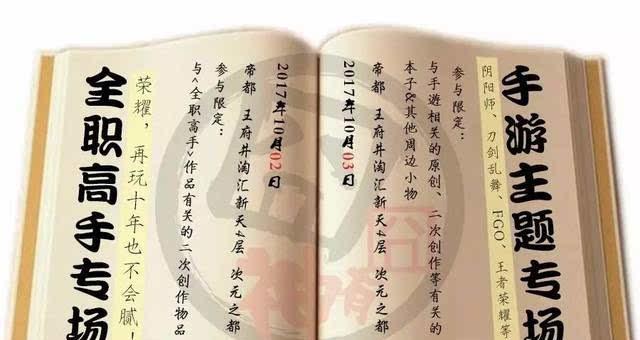 手游主题专场
阴阳师、刀剑乱舞、FGO、王者荣耀等
参与限定:
与手游相关的原创、二次创作等有关的
本子&其他周边小物
帝都 王府井淘汇新天4层 次元之都
2017年10月03日
2017年10月02日
帝都 王府井淘汇新天4层 次元之都
参与限定:
与<全职高手>作品有关的二次创作物品
荣耀，再玩十年也不会腻！
全职高手专场
囧